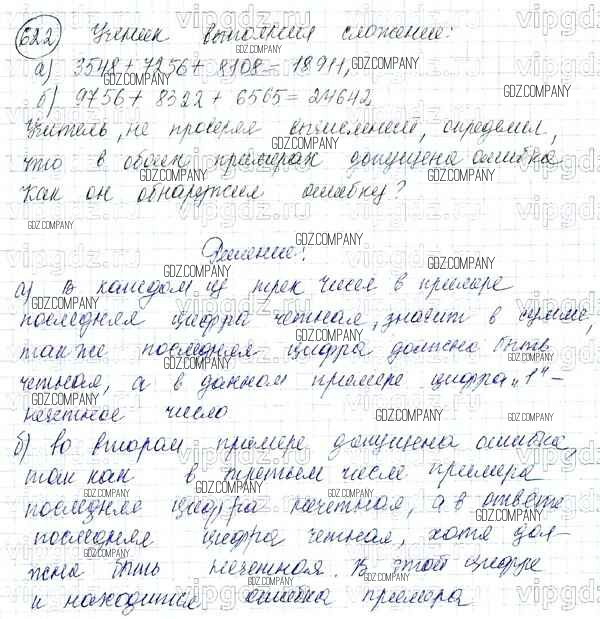 622 Ученик выполнил сложение:
а) 3548 + 7256 + 8108 = 18911,
б) 9756 + 8322 + 6565 = 24642
Учитель, не проверяя вычислений, определил,
что в обоих примерах допущена ошибка.
Как он обнаружил ошибку?
Решение:
а) В каждом из трех чисел в примере
последняя цифра четная, значит в сумме,
также последняя цифра должна быть
четная, а в данном примере цифра „1“ –
нечетное число
б) во втором примере допущена ошибка,
так как в третьем числе примера
последняя цифра нечетная, а в ответе
последняя цифра четная, хотя дол-
жна быть нечетная. В этой цифре
и находится ошибка примера